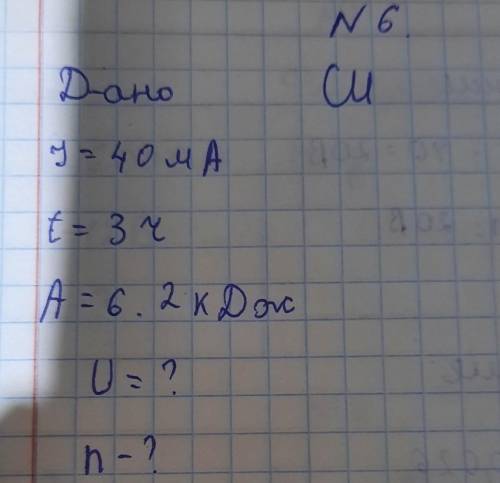 N 6.
Дано СИ
I = 40 мА
t = 3 ч
A = 6.2 кДж
U = ?
n - ?